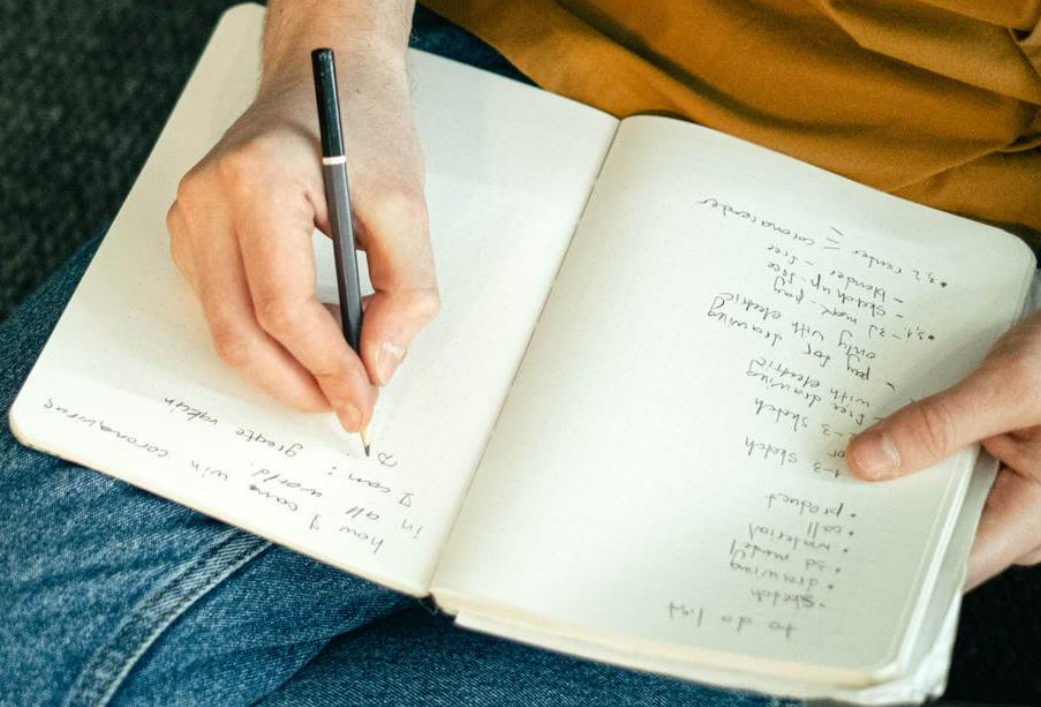 to do list
• sketch
• drawing
• 3d model
• material
• call
• product
1-3 sketch
or
2-3 sketch
- free drawing
with electric
- pay for drawing
only with electric
• 3.1. - 3d max - pay
- sketch up - free
- blender - free
• 3.2 render = corona render
how I can win coronavirus
in all world.
I can:
greate vakcin